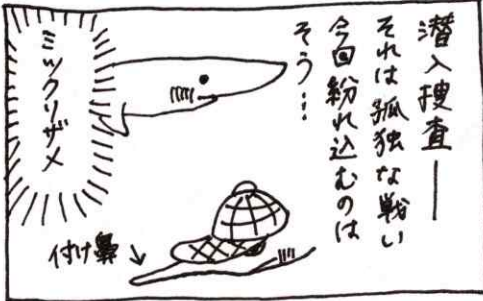 潜入捜査──
それは孤独な戦い
今回紛れ込むのは
そう…
ミツクリザメ
付け鼻